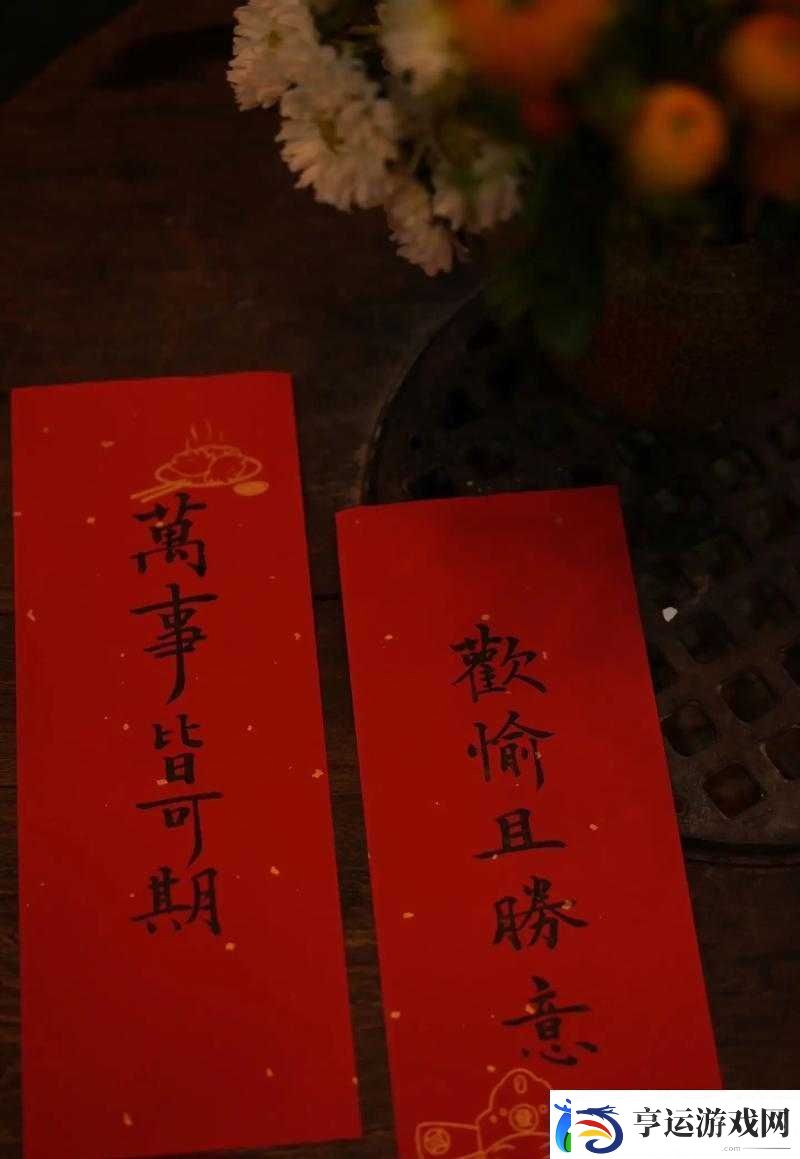 萬事皆可期
歡愉且勝意
亨运游戏网
.com